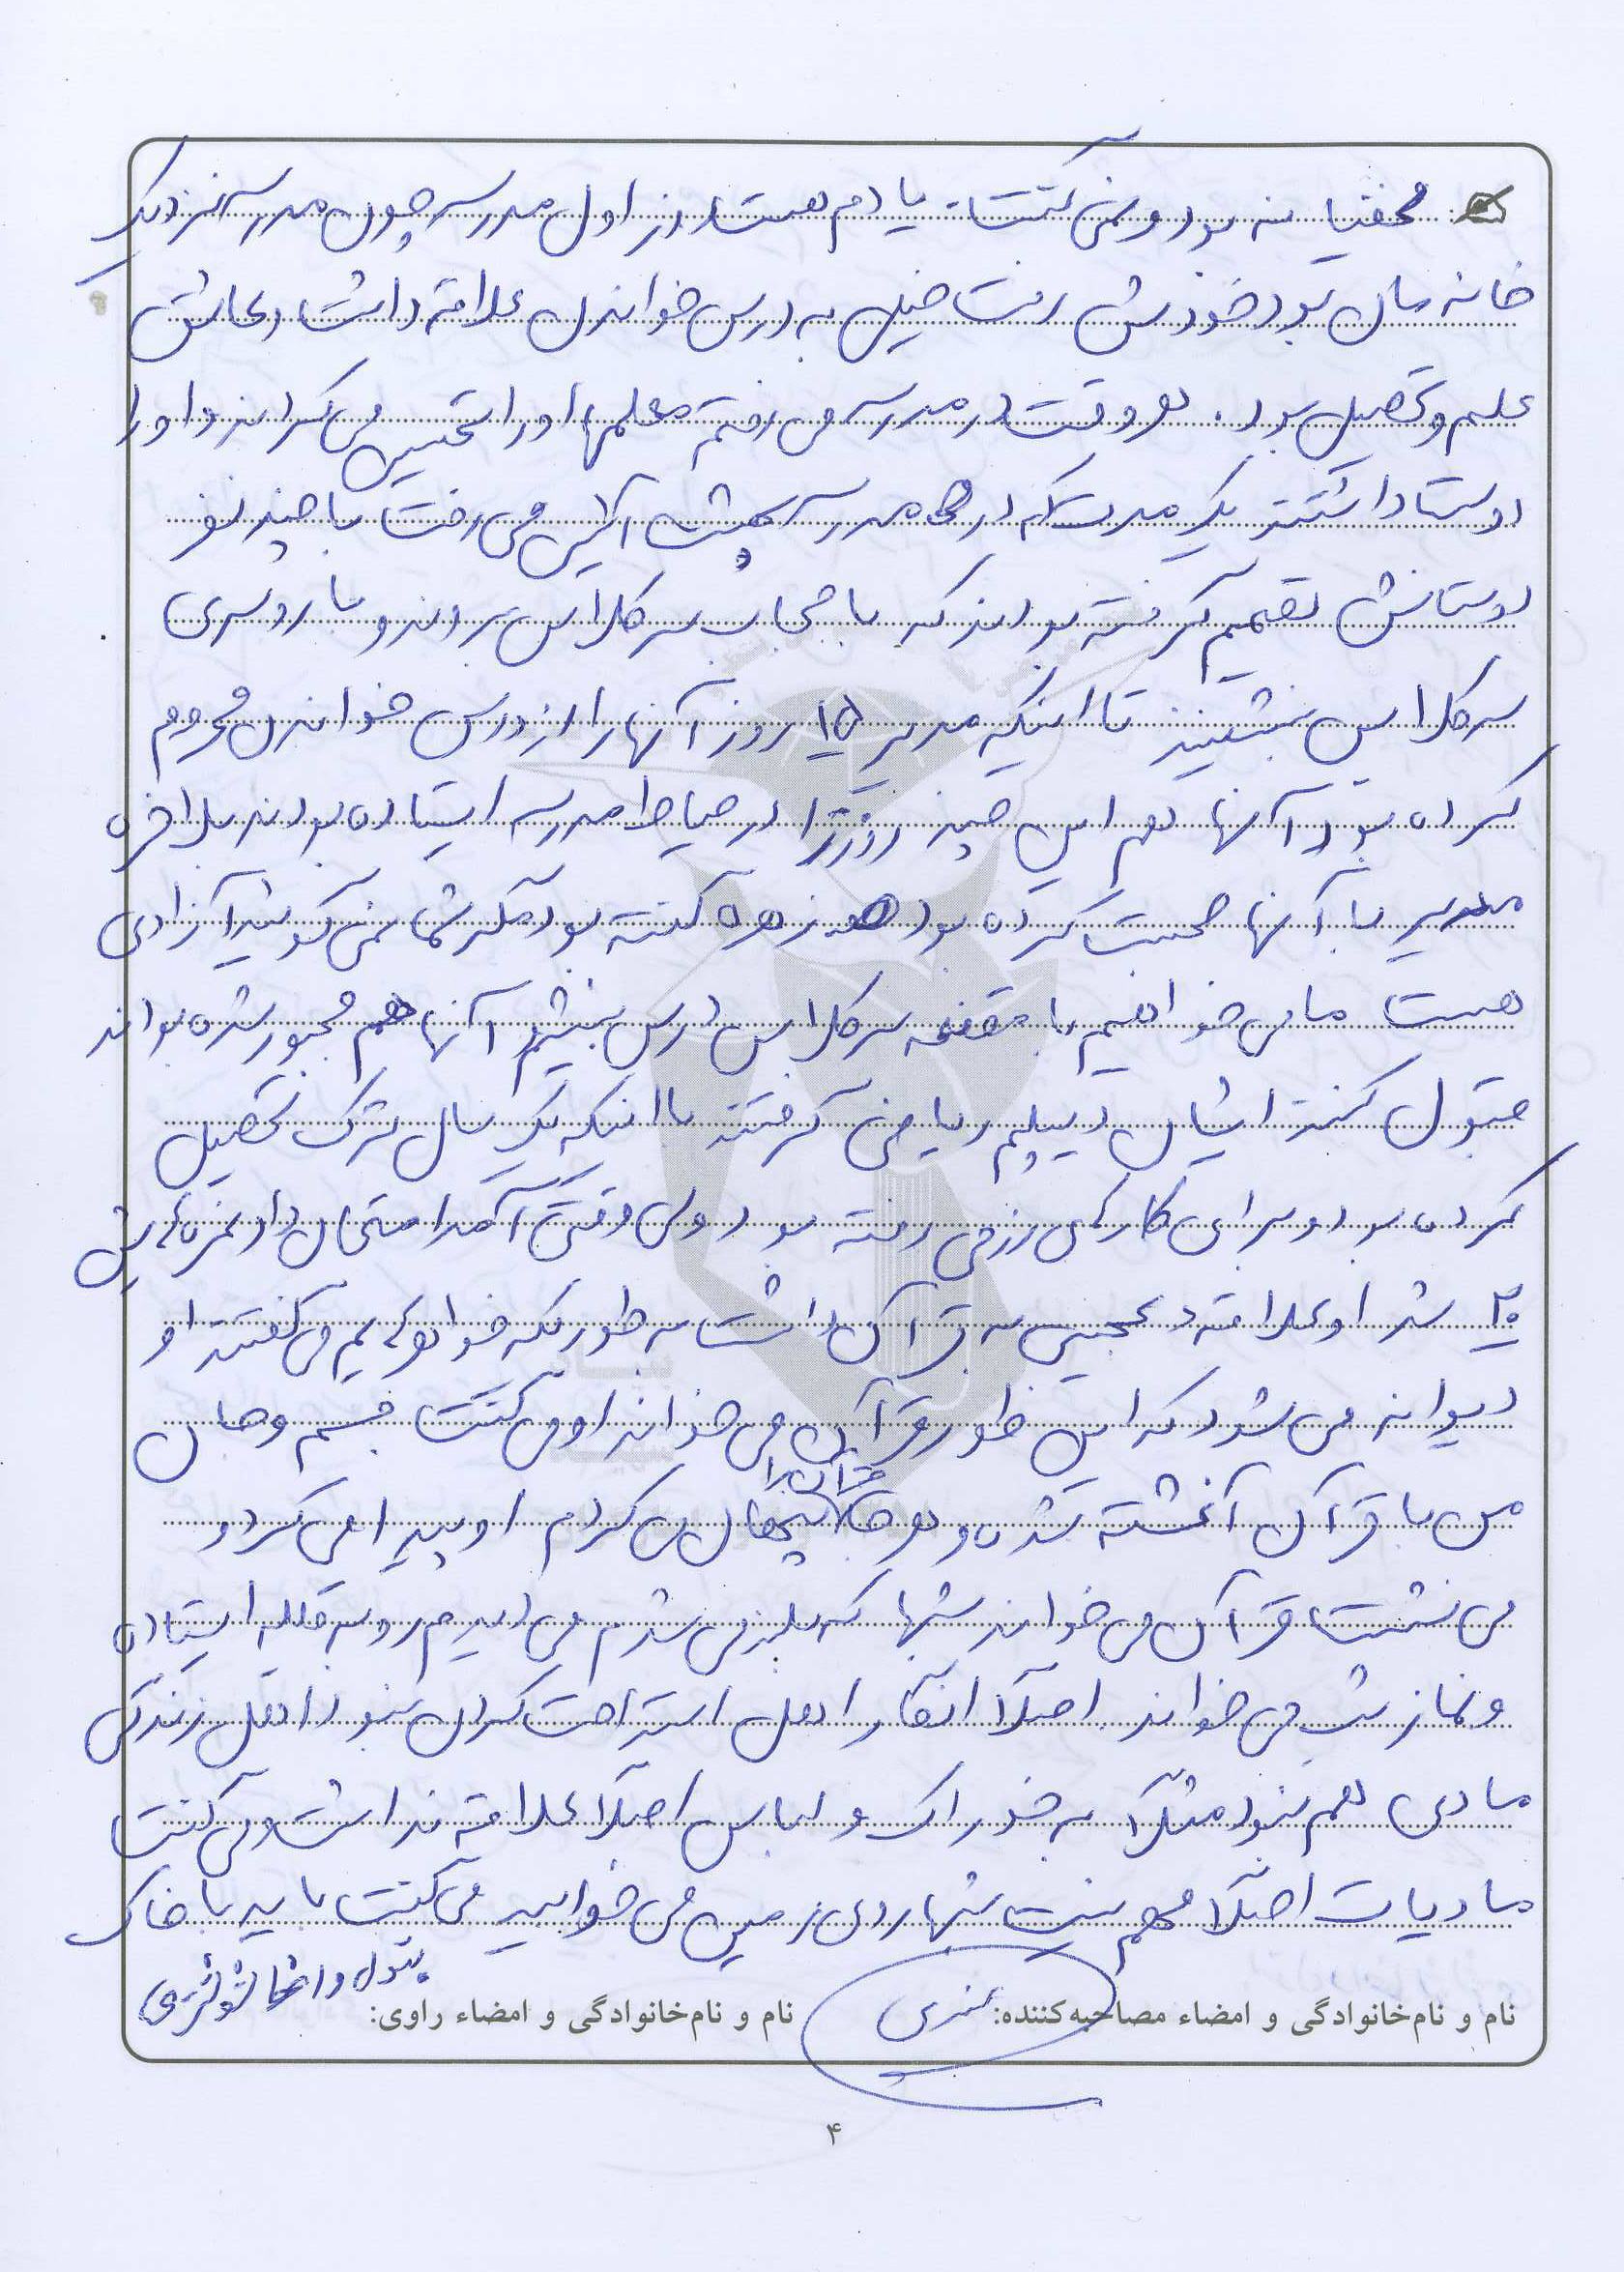 مخفیانه بود و نمی گفت. یادم هست روز اول مدرسه چون مدرسه نزدیک
خانه مان بود خودش رفت خیلی به درس خواندن علاقه داشت و عاشق
علم و تحصیل بود. هر وقت در مدرسه می رفتم معلمها او را تحسین می کردند و او را
دوست داشتند یک مدت که در مدرسه بهشت آئین می رفت با چند نفر
دوستانش تصمیم گرفته بودند که با حجاب سر کلاس بروند و با روسری
سر کلاس بنشینند تا اینکه مدیر ۱۵ روز آنها را از درس خواندن محروم
کرده بود آنها هم این چند روز را در حیاط مدرسه ایستاده بودند بلاخره
مدیر با آنها صحبت کرده بود زهره گفته بود مگر شما نمی گوئید آزادی
هست ما می خواهیم با مقنعه سر کلاس درس بنشینیم آنها هم مجبور شده بودند
قبول کنند ایشان دیپلم ریاضی گرفتند با اینکه یک سال ترک تحصیل
کرده بود و برای کارهای رزمی رفته بود ولی وقتی آمد امتحان داد نمره هایش
۲۰ شد او علاقه عجیبی به قرآن داشت به طوریکه خواهرهایم می گفتند او
دیوانه می شود که این طور قرآن می خواند او می گفت جسم و جان
من با قرآن آغشته شده و هر جا قرآن را پنهان می کردم او پیدا می کرد و
می نشست قرآن می خواند شبها که بلند می شدم می دیدم رو به قبله ایستاده
و نماز شب می خواند اصلاً انگار اهل استراحت کردن نبود اهل زندگی
مادی هم نبود مثلاً به خوراک و لباس اصلاً علاقه نداشت و می گفت
مادیات اصلاً مهم نیست شبها روی زمین می خوابید می گفت باید با خاک
نام و نام‌خانوادگی و امضاء مصاحبه‌کننده:
نام و نام‌خانوادگی و امضاء راوی: بتول
۴